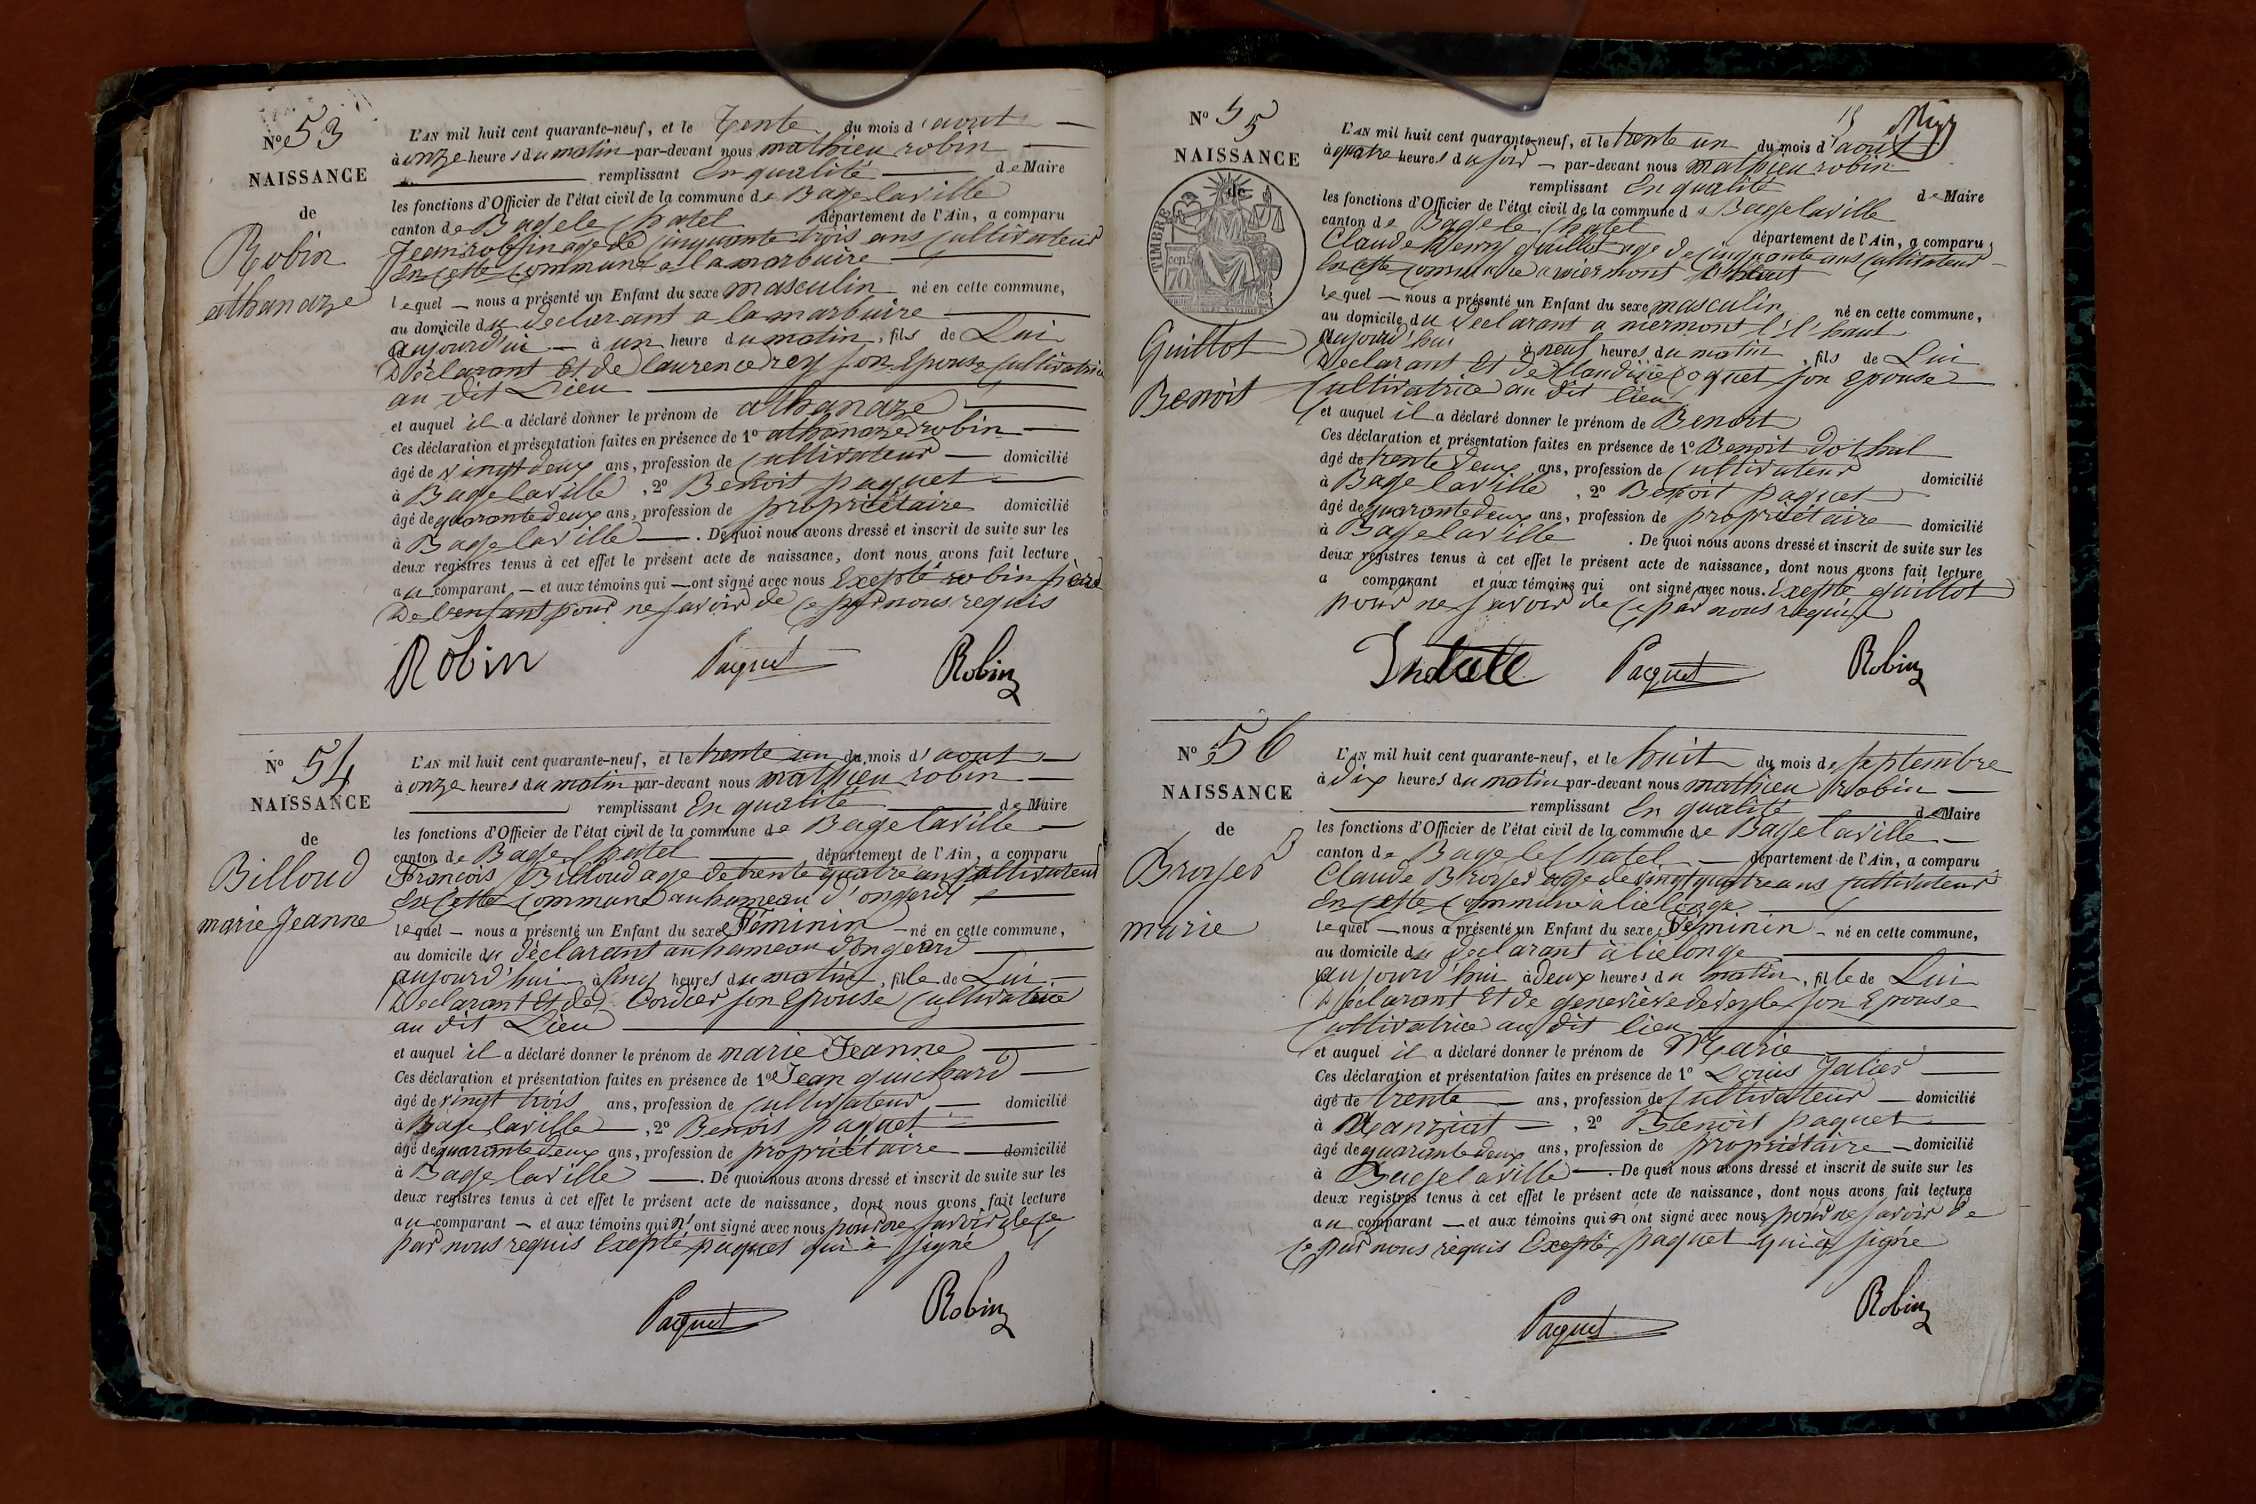 N° 53
NAISSANCE
de
Robin
athanaze
L'AN mil huit cent quarante-neuf, et le Trente du mois d'aout
à onze heures du matin par-devant nous mathieu robin
remplissant En qualité de Maire
les fonctions d'Officier de l'état civil de la commune de Bage laville
canton de Bage le Chatel département de l'Ain, a comparu
Jean robin age de Cinquante trois ans Cultivateur
En cette Commune a la marbuire
lequel nous a présenté un Enfant du sexe masculin né en cette commune,
au domicile du declarant a la marbuire
aujourd'ui à un heure du matin, fils de Lui
Déclarant Et de laurence rey son Epouse Cultivatrice
au dit Lieu
et auquel il a déclaré donner le prénom de athanaze
Ces déclaration et présentation faites en présence de 1° athanaze robin
âgé de vingt deux ans, profession de Cultivateur domicilié
à Bage laville, 2° Benoit paquet
âgé de quarante deux ans, profession de propriétaire domicilié
à Bage laville. De quoi nous avons dressé et inscrit de suite sur les
deux registres tenus à cet effet le présent acte de naissance, dont nous avons fait lecture
au comparant et aux témoins qui ont signé avec nous Exepté robin pere
De l'enfant pour ne savoir de ce par nous requis
Robin Paquet Robin
N° 54
NAISSANCE
de
Billoud
marie Jeanne
L'AN mil huit cent quarante-neuf, et le trente un du mois d'aout
à onze heures du matin par-devant nous mathieu robin
remplissant En qualité de Maire
les fonctions d'Officier de l'état civil de la commune de Bage laville
canton de Bage Chatel département de l'Ain, a comparu
Francois Billoud age de trente quatre ans Cultivateur
En Cette Commune au hameau d'ongerd
lequel nous a présenté un Enfant du sexe Féminin né en cette commune,
au domicile du déclarant au hameau dongeard
aujourd'hui à Cinq heures du matin, fille de Lui
Declarant Et de Cordier son Epouse Cultivatrice
au dit Lieu
et auquel il a déclaré donner le prénom de marie Jeanne
Ces déclaration et présentation faites en présence de 1° Jean guichard
âgé de vingt trois ans, profession de Cultivateur domicilié
à Bage laville, 2° Benois paquet
âgé de quarante deux ans, profession de propriétaire domicilié
à Bage laville. De quoi nous avons dressé et inscrit de suite sur les
deux registres tenus à cet effet le présent acte de naissance, dont nous avons fait lecture
au comparant et aux témoins qui n'ont signé avec nous pour ne savoir de ce
par nous requis Exepté paquet qui à signé
Paquet Robin
N° 55
NAISSANCE
de
TIMBRE
70
Guillot
Benoit
L'AN mil huit cent quarante-neuf, et le trente un du mois d'aout
à quatre heures du soir par-devant nous mathieu robin
remplissant En qualité de Maire
les fonctions d'Officier de l'état civil de la commune de Bage laville
canton de Bage le Chatel département de l'Ain, a comparu
Claude Henry guillot age de Cinquante ans Cultivateur
En cette Commune a miermont l'haut
lequel nous a présenté un Enfant du sexe masculin né en cette commune,
au domicile du declarant a mermont l'haut
aujourd'hui à neuf heures du matin, fils de Lui
Declarant Et de Claudine Coquet son Epouse
Cultivatrice au dit lieu
et auquel il a déclaré donner le prénom de Benoit
Ces déclaration et présentation faites en présence de 1° Benoit
âgé de trente deux ans, profession de Cultivateur domicilié
à Bage laville, 2° Benoit paquet
âgé de quarante deux ans, profession de propriétaire domicilié
à Bage laville. De quoi nous avons dressé et inscrit de suite sur les
deux registres tenus à cet effet le présent acte de naissance, dont nous avons fait lecture
a comparant et aux témoins qui ont signé avec nous. Exepté guillot
pour ne savoir de ce par nous requis
Paquet Robin
N° 56
NAISSANCE
de
Broyer
marie
L'AN mil huit cent quarante-neuf, et le huit du mois de septembre
à dix heures du matin par-devant nous mathieu Robin
remplissant En qualité de Maire
les fonctions d'Officier de l'état civil de la commune de Bage laville
canton de Bage le Chatel département de l'Ain, a comparu
Claude Broyer age de vingt quatre ans Cultivateur
En cette Commune a lielonge
lequel nous a présenté un Enfant du sexe Féminin né en cette commune,
au domicile du declarant à lielonge
aujourd'hui à deux heures du matin, fille de Lui
Déclarant Et de genevieve deveyle son Epouse
Cultivatrice au dit lieu
et auquel il a déclaré donner le prénom de Marie
Ces déclaration et présentation faites en présence de 1° Louis
âgé de trente ans, profession de Cultivateur domicilié
à Manziat, 2° Benoit paquet
âgé de quarante deux ans, profession de propriétaire domicilié
à Bage laville. De quoi nous avons dressé et inscrit de suite sur les
deux registres tenus à cet effet le présent acte de naissance, dont nous avons fait lecture
au comparant et aux témoins qui n'ont signé avec nous pour ne savoir de
ce par nous requis Exepté paquet qui à signé
Paquet Robin